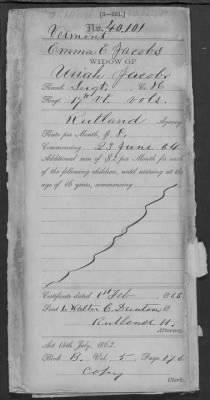 [3—221.]
No. 40,101
Vermont
Emma E. Jacobs
WIDOW OF
Uriah Jacobs
Rank Sergt. Co. H
Regt. 17th Vt. Vols.
Rutland Agency
Rate per Month, $ 8.
Commencing 23 June 64
Additional sum of $2 per Month for each
of the following children, until arriving at the
age of 16 years, commencing
Certificate dated 1st Feb 1865
Sent to Walter C. Dunton
Rutland Vt.
Attorney.
Act 14th July, 1862.
Book B. Vol. 5 Page 176
Copy
Clerk.